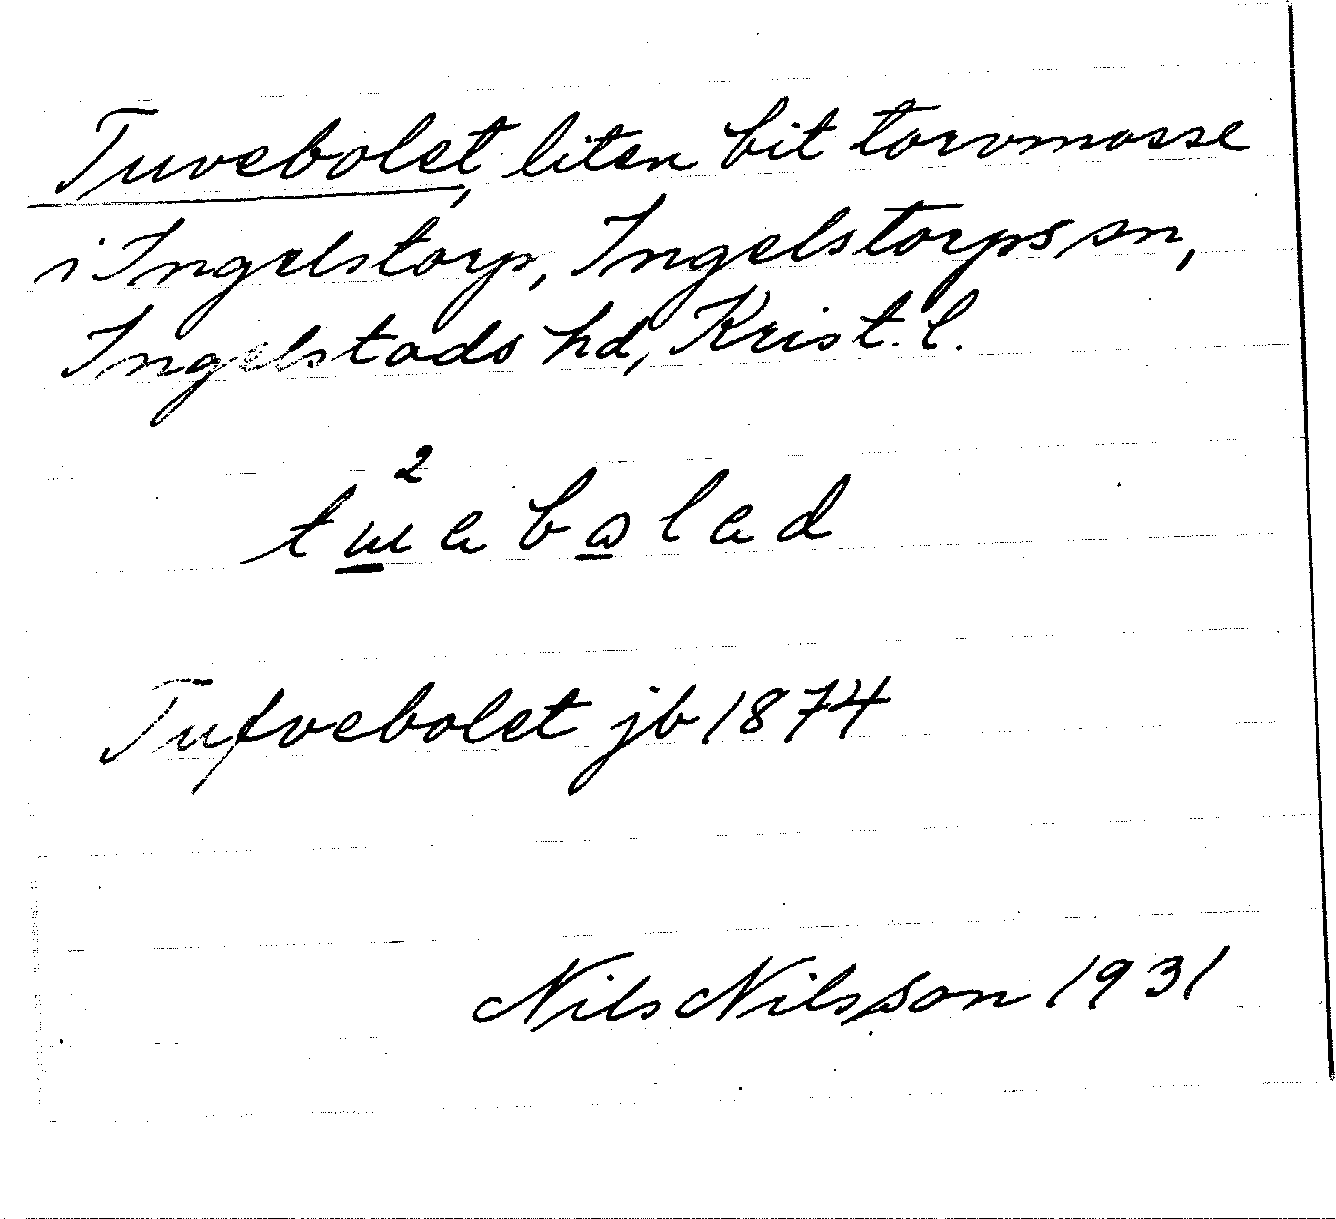 Tuvebolet, liten bit torvmosse
i Ingelstorp, Ingelstorps sn,
Ingelstads hd, Krist. l.
Tufvebolet jb 1874
Nils Nilsson 1931